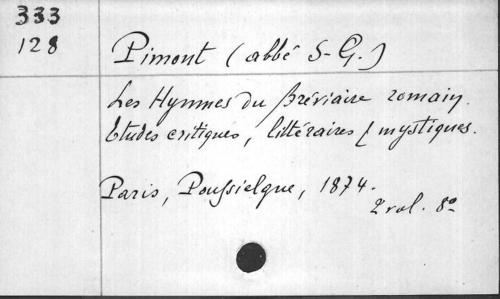 333
128
Pimont (abbé S-G.)
Les Hymnes du Bréviaire romain.
Etudes critiques, littéraires & mystiques.
Paris, Poussielgue, 1874.
2 vol. 8º